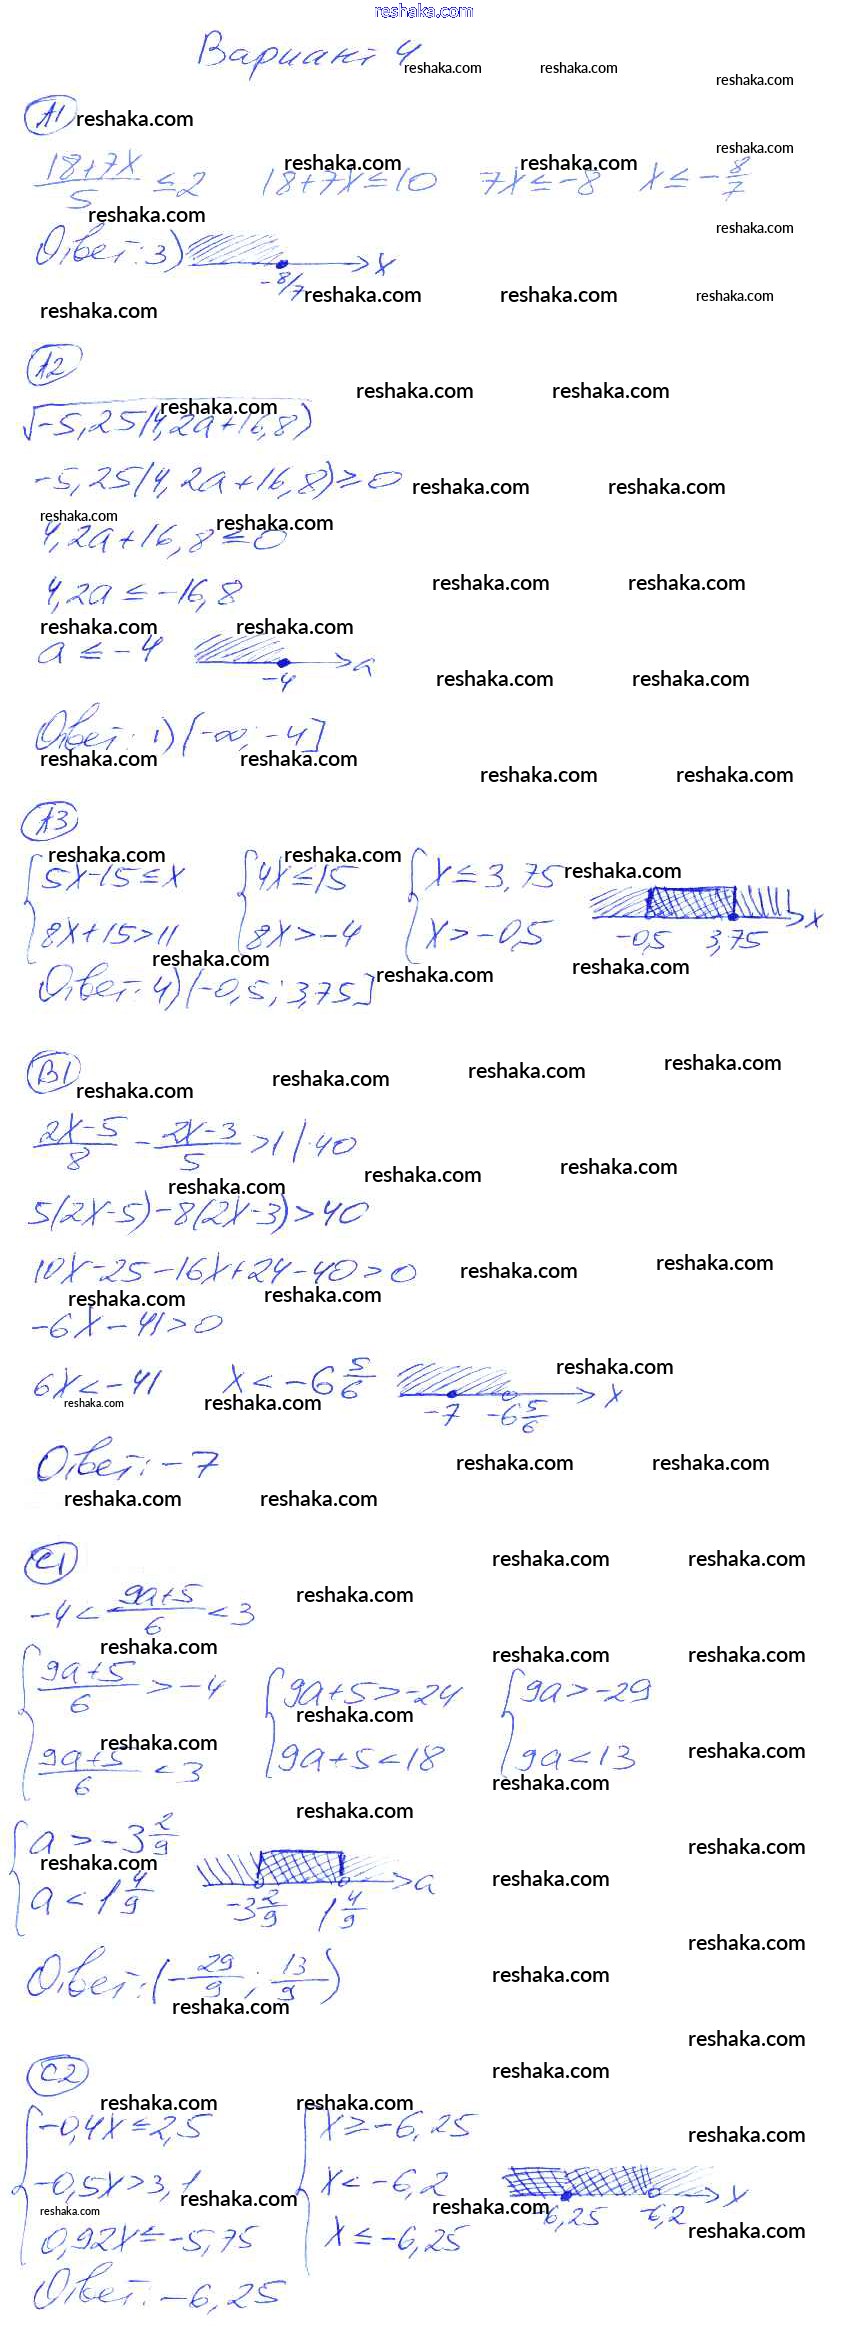 reshaka.com
Вариант 4
А1
(18+7x)/5 ≤ 2   18+7x ≤ 10   7x ≤ -8   x ≤ -8/7
Ответ: 3)   -8/7   x
А2
√(-5,25(4,2a+16,8))
-5,25(4,2a+16,8) ≥ 0
4,2a+16,8 ≤ 0
4,2a ≤ -16,8
a ≤ -4   -4   a
Ответ: 1) (-∞; -4]
А3
{5x-15 ≤ x   {4x ≤ 15   {x ≤ 3,75
{8x+15 > 11   {8x > -4   {x > -0,5   -0,5   3,75   x
Ответ: 4) (-0,5; 3,75]
В1
(2x-5)/8 - (2x-3)/5 > 1 |·40
5(2x-5)-8(2x-3) > 40
10x-25-16x+24-40 > 0
-6x-41 > 0
6x < -41   x < -6 5/6   -7   -6 5/6   x
Ответ: -7
С1
-4 < (9a+5)/6 < 3
{(9a+5)/6 > -4   {9a+5 > -24   {9a > -29
{(9a+5)/6 < 3   {9a+5 < 18   {9a < 13
{a > -3 2/9
{a < 1 4/9   -3 2/9   1 4/9   a
Ответ: (-29/9; 13/9)
С2
{-0,4x ≤ 2,5   {x ≥ -6,25
{-0,5x > 3,1   {x < -6,2   -6,25   -6,2   x
{0,92x ≤ -5,75   {x ≤ -6,25
Ответ: -6,25